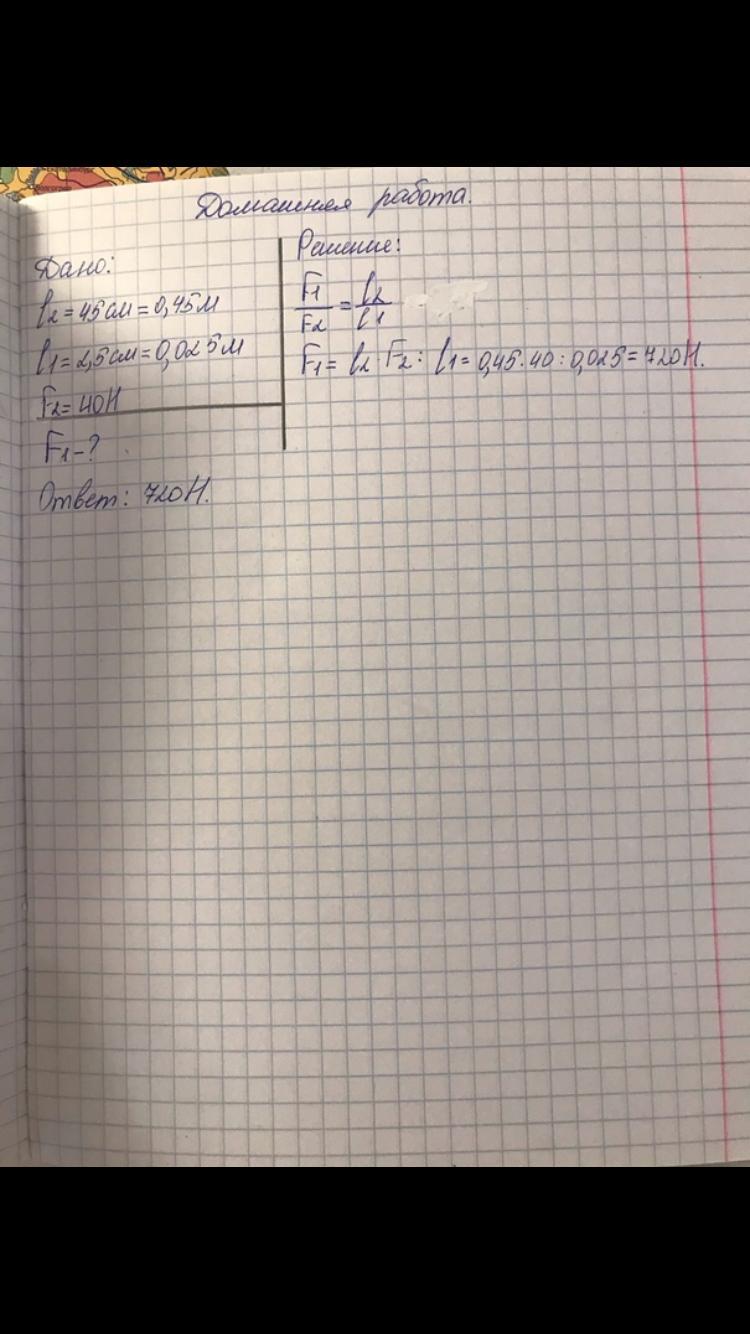 Домашняя работа.
Дано:
l2 = 45 см = 0,45 м
l1 = 2,5 см = 0,025 м
F2 = 40 Н
F1 - ?
Решение:
F1/F2 = l2/l1
F1 = l2 · F2 : l1 = 0,45 · 40 : 0,025 = 720 Н.
Ответ: 720 Н.